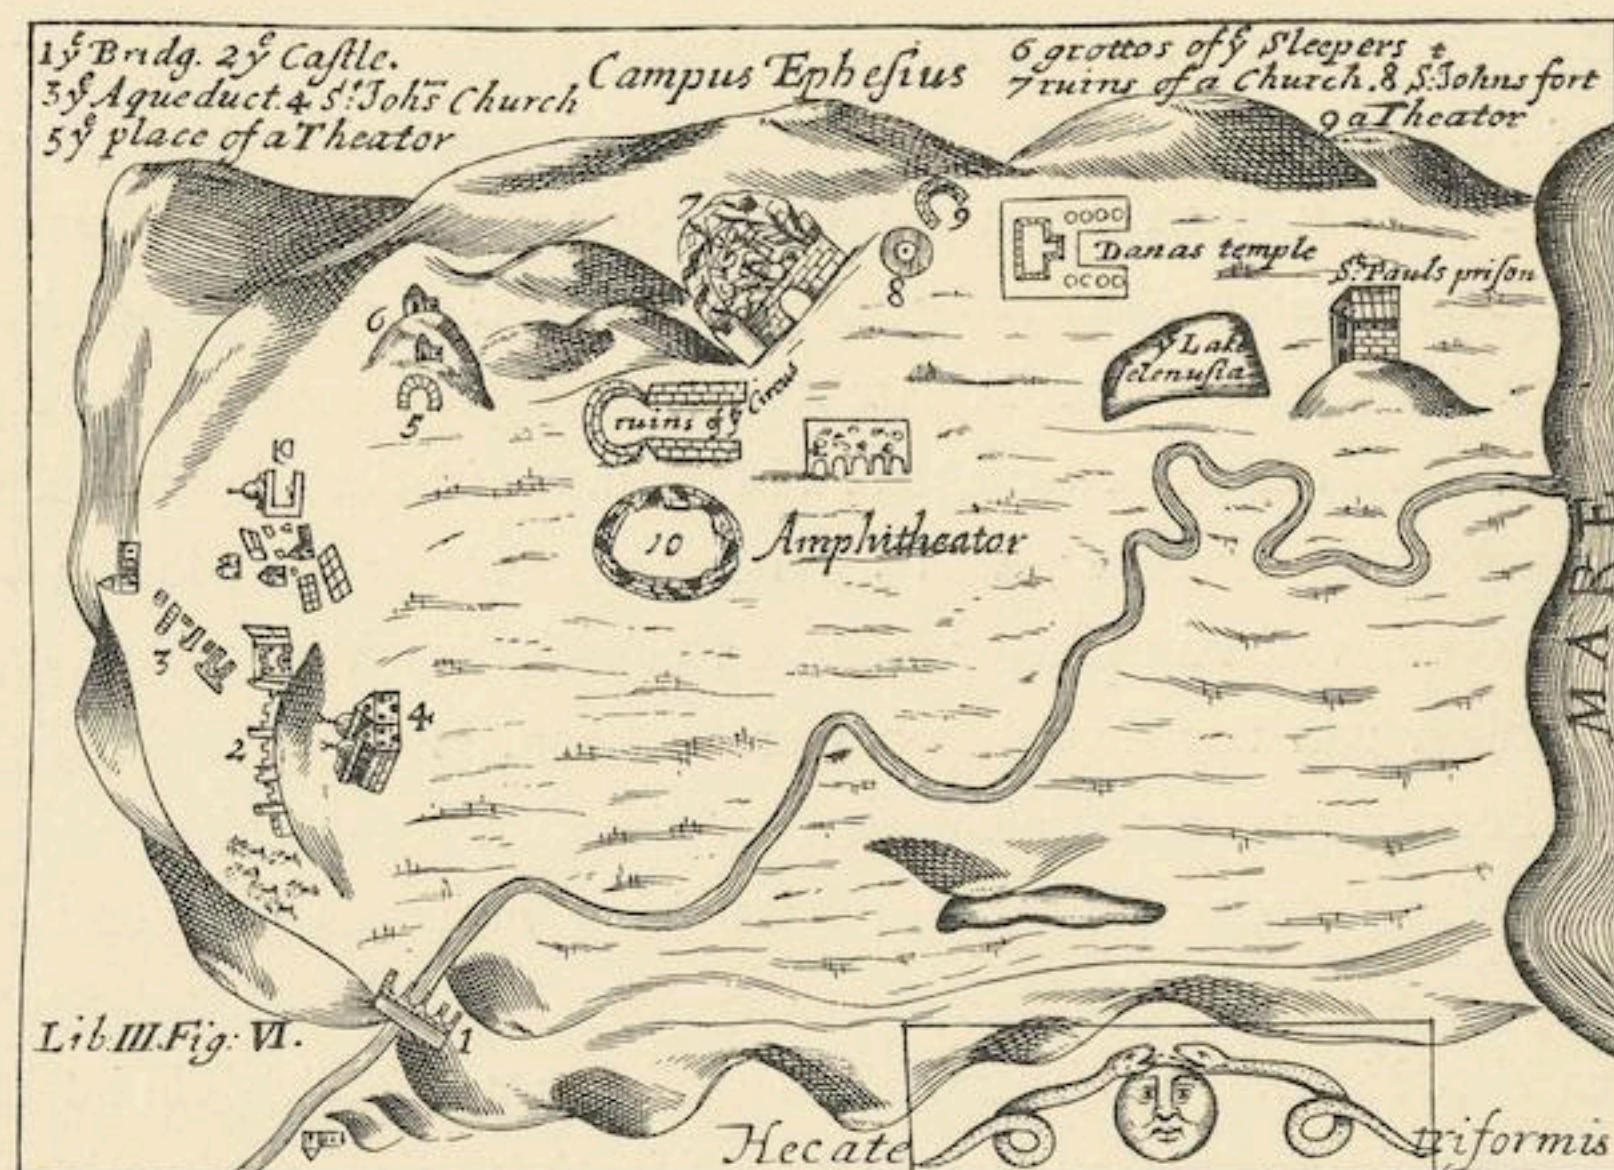 1 yᵉ Bridg. 2 yᵉ Caſtle.
3 yᵉ Aqueduct. 4 Sᵗ. Joh̅s Church
5 yᵉ place of a Theator
Campus Epheſius
6 grottos of yᵉ Sleepers &
7 ruins of a Church. 8 S: Johns fort
9 a Theator
7
9
8
Danas temple
Sᵗ. Pauls priſon
6
yᵉ Lake
ſelenuſia
5
ruins of yᵉ Circus
10
Amphitheator
MARE
3
4
2
Lib. III. Fig: VI.
1
Hecate triformis